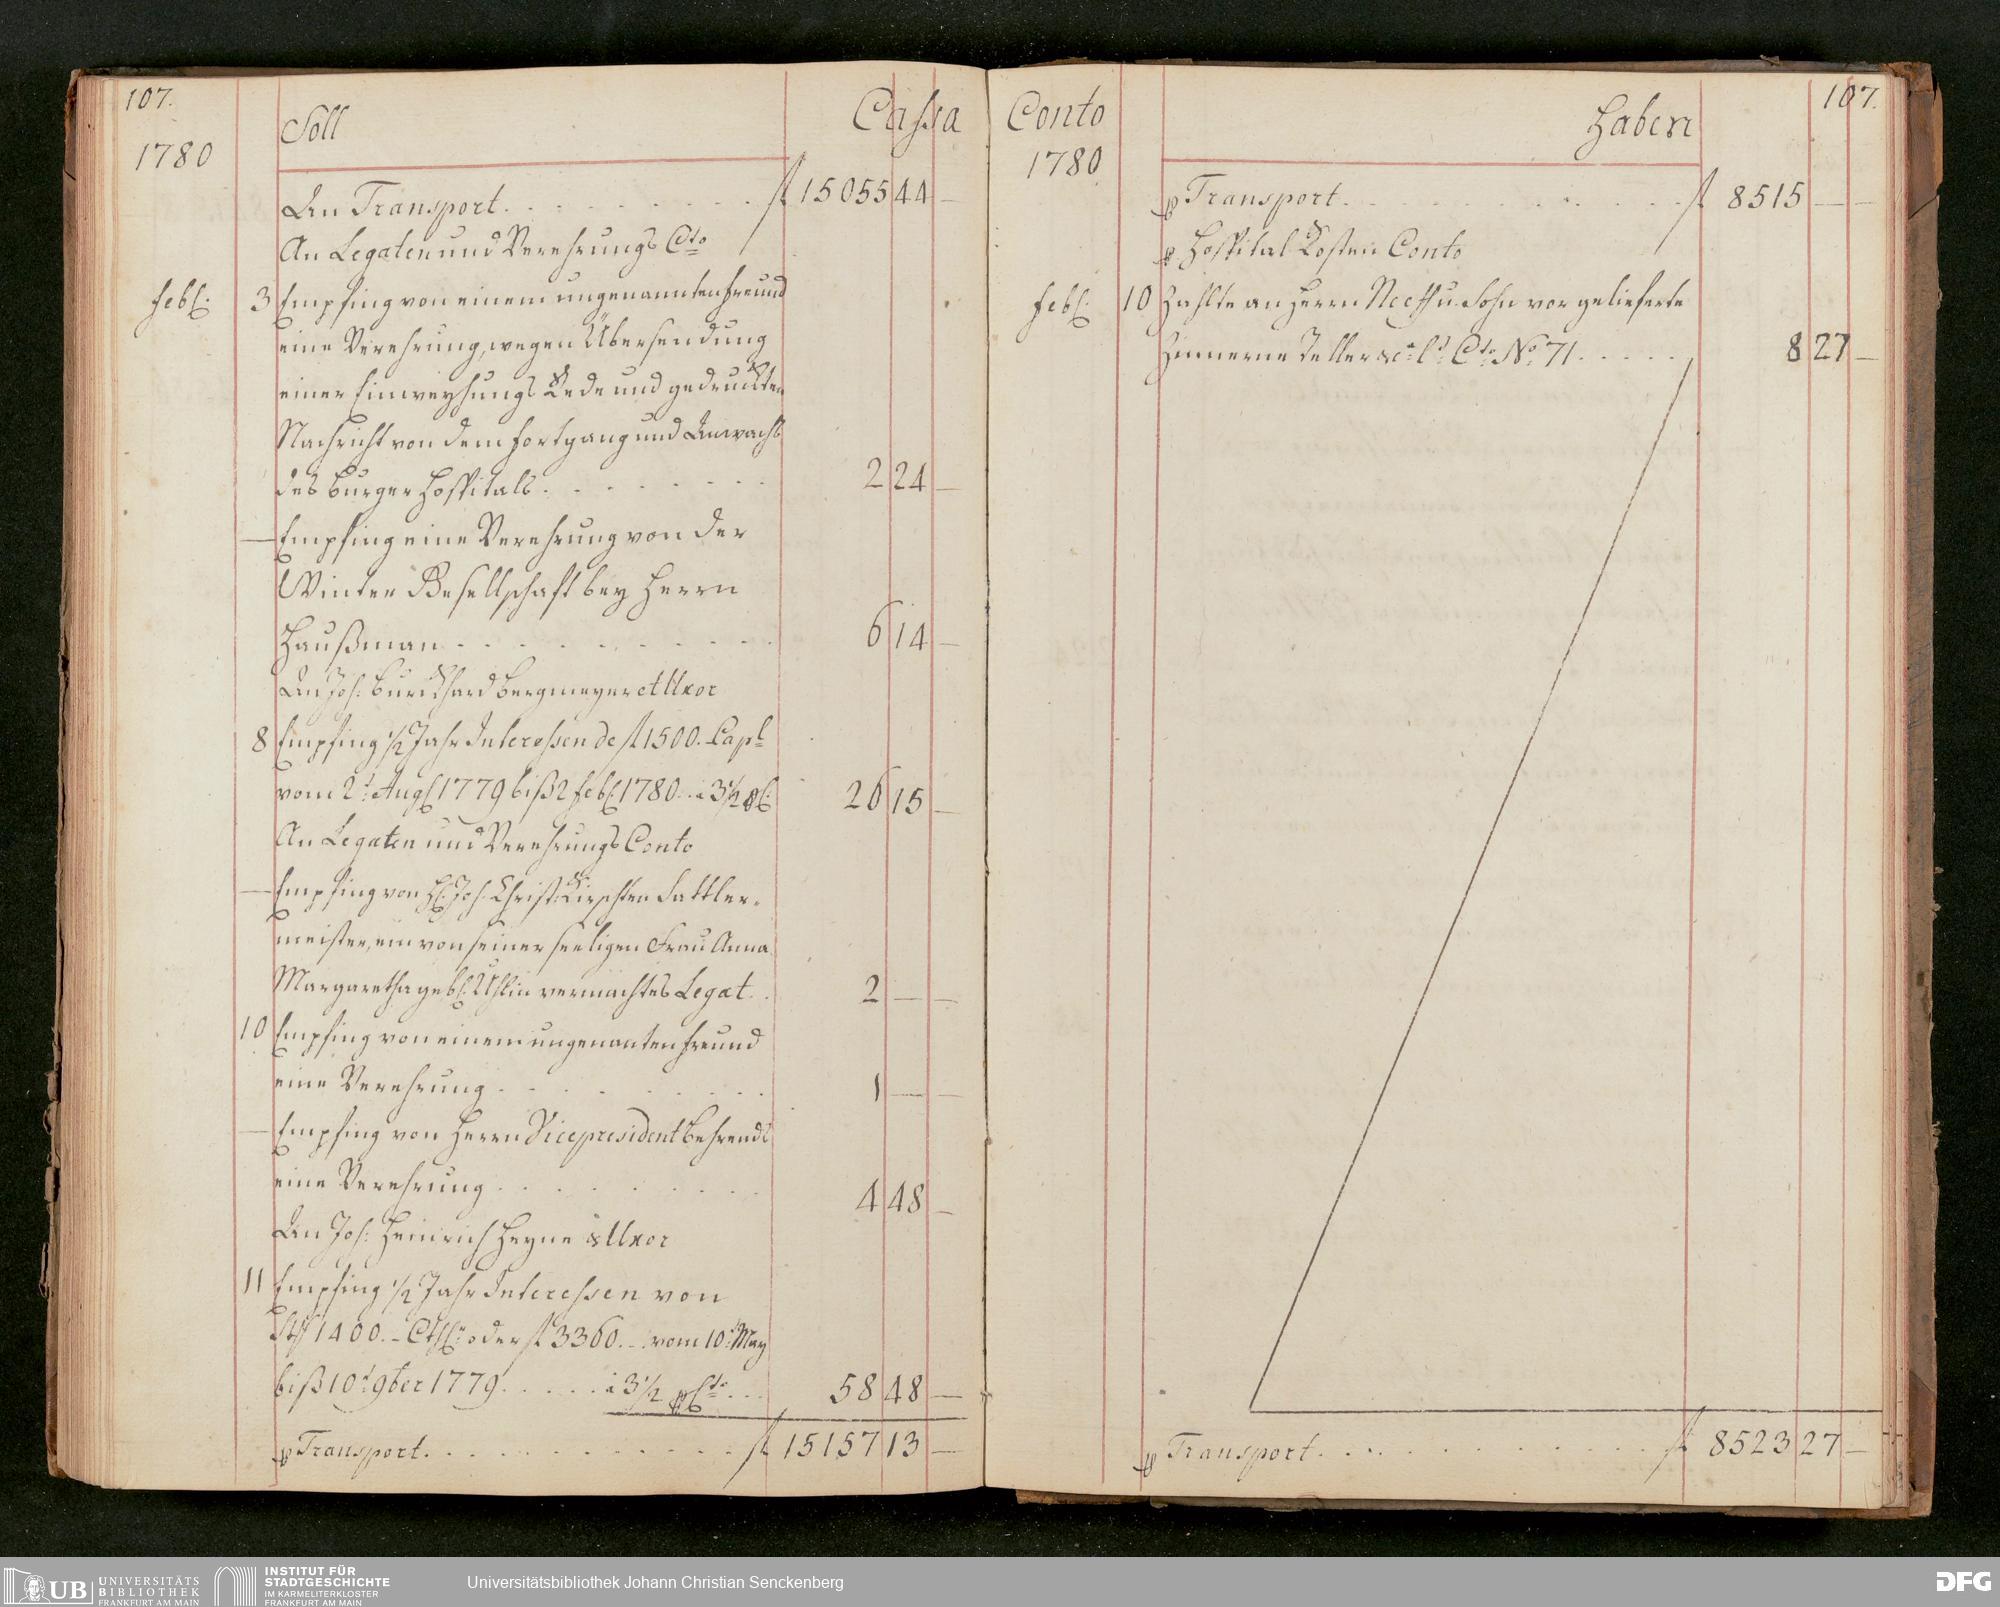 107.
Soll
Cassa
1780
An Transport . . . . . . . . . fl 15055 44 —
An Legaten und Verehrungs Cto
Febr. 3 Empfing von einem ungenannten Freund
eine Verehrung, wegen Übersendung
einer Einweyhungs Rede und gedruckten
Nachricht von dem Fortgang und Anwachs
des Burger Hospitals . . . . . . . . 2 24 —
— Empfing eine Verehrung von der
Winter Gesellschaft bey Herrn
Haußman . . . . . . . . . 6 14 —
An Joh: Burckhard Bergmeyer et Uxor
8 Empfing ½ Jahr Interessen de fl 1500. Capl
vom 2t Aug 1779 biß 2 Febr. 1780 . . à 3½ pC. 26 15 —
An Legaten und Verehrungs Conto
— Empfing von H. Joh. Christ: Kirschten Sattler-
meister, ein von seiner seeligen Frau Anna
Margaretha geb. Uhlin vermachtes Legat . . 2 — —
10 Empfing von einem ungenanten Freund
eine Verehrung . . . . . . . . 1 — —
— Empfing von Herrn Vicepresident Behrends
eine Verehrung . . . . . . . . 4 48 —
An Joh: Heinrich Heyne & Uxor
11 Empfing ½ Jahr Interessen von
1400. – oder fl 3360. – . vom 10t May
biß 10t 9ber 1779 . . . . . à 3½ pCto . . . 58 48 —
p Transport . . . . . . . . . . . fl 15157 13 —
107.
Conto
Haben
1780
p Transport . . . . . . . . . . . fl 8515 — —
p Hospital Kosten Conto
Febr. 10 Zahlte an Herrn Neeff u. Sohn vor gelieferte
Zinnerne Teller &ca lt Cto No. 71 . . . . . 8 27 —
p Transport . . . . . . . . . . . . fl 8523 27 —
UB UNIVERSITÄTS
BIBLIOTHEK
FRANKFURT AM MAIN
INSTITUT FÜR
STADTGESCHICHTE
IM KARMELITERKLOSTER
FRANKFURT AM MAIN
Universitätsbibliothek Johann Christian Senckenberg
DFG